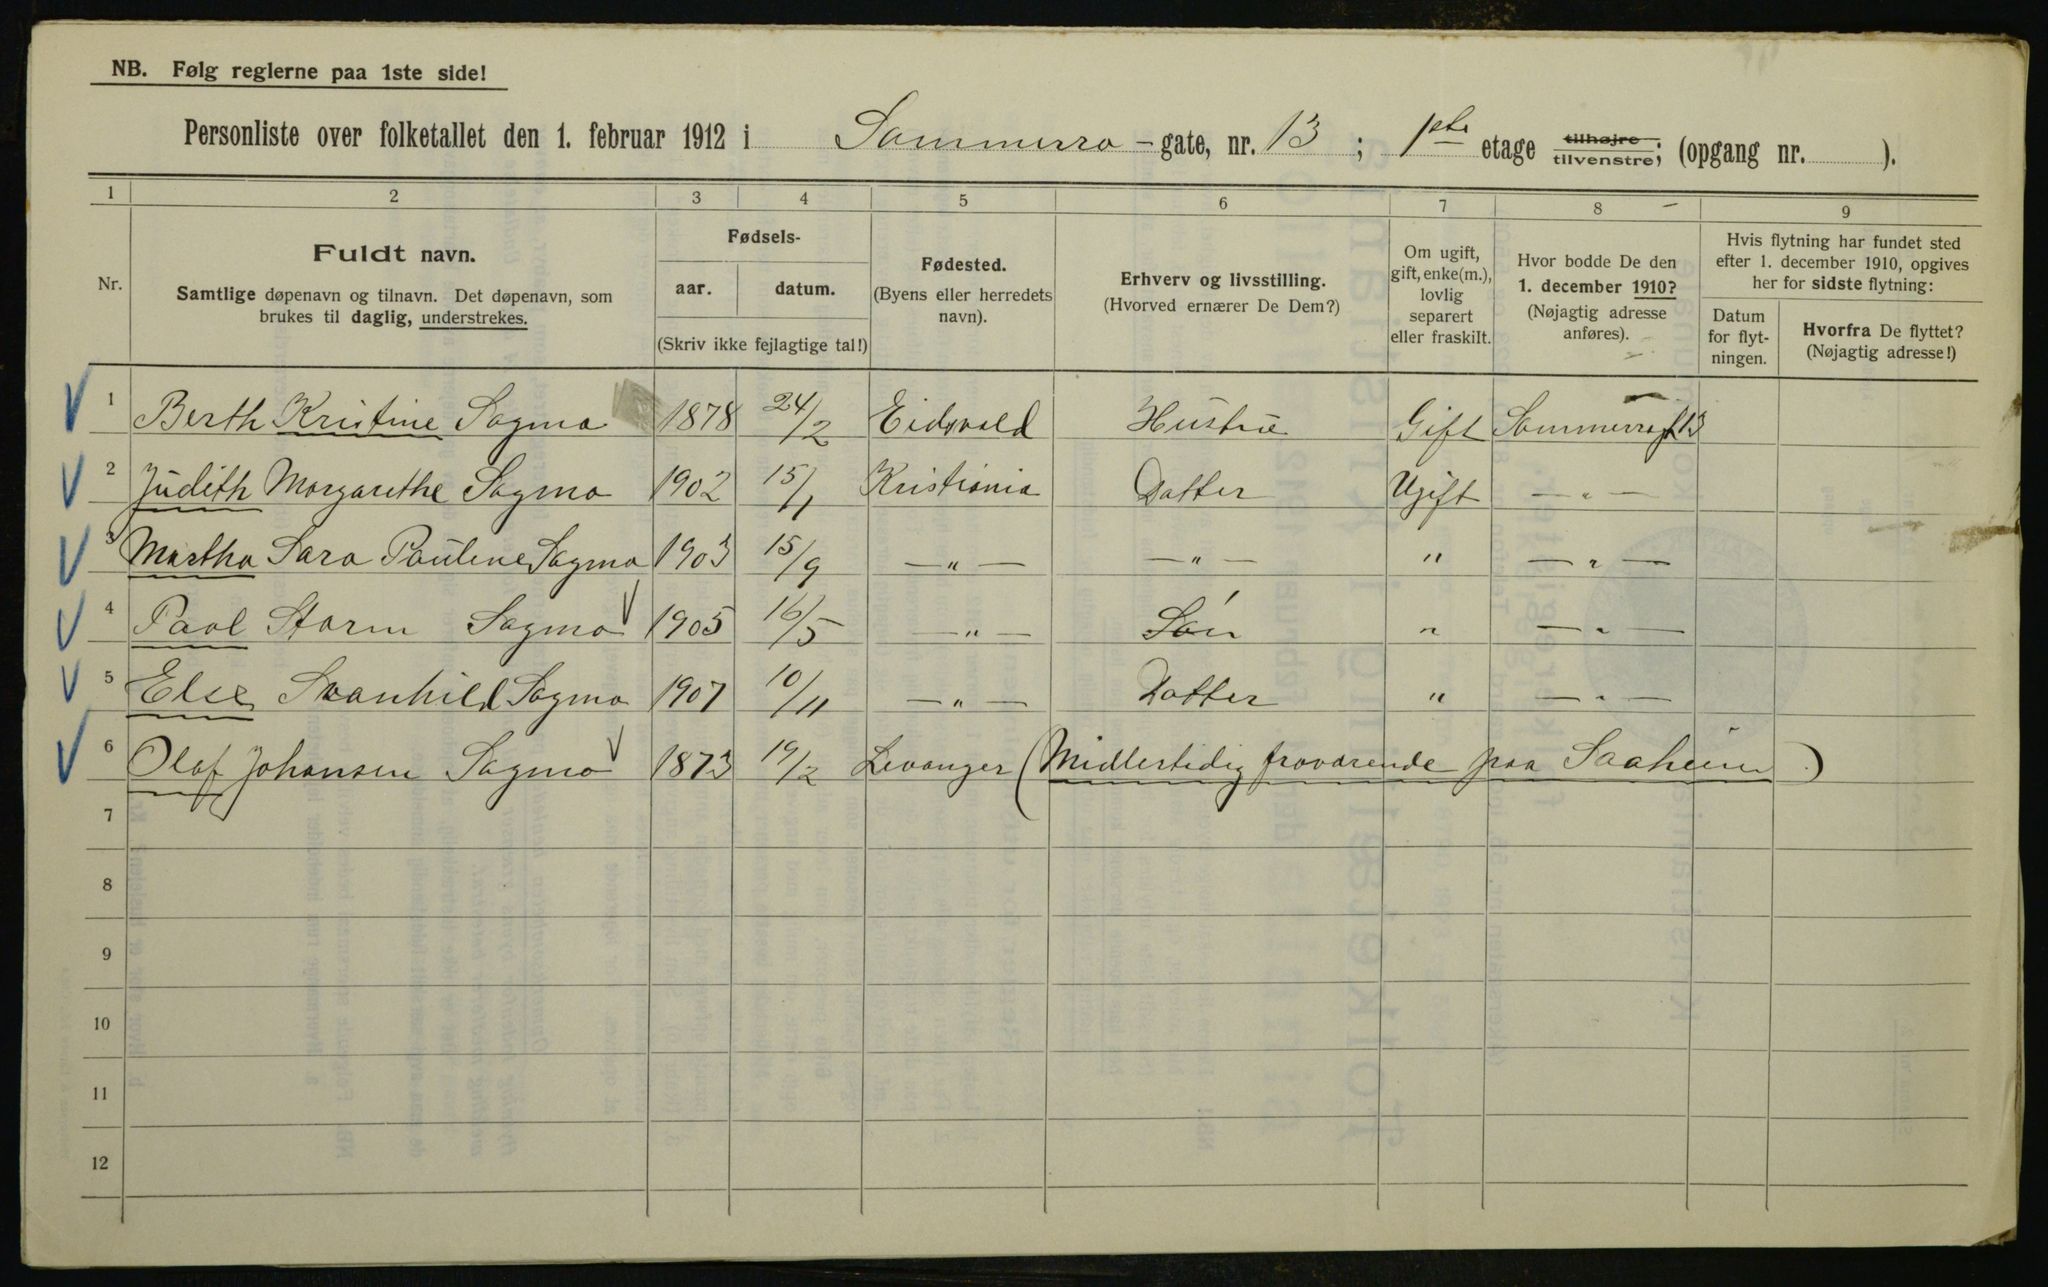 NB. Følg reglerne paa 1ste side!
Personliste over folketallet den 1. februar 1912 i Sommerro - gate, nr. 13 ; 1ste etage tilhøjre, tilvenstre, (opgang nr. ).
1 2 3 4 5 6 7 8 9
Nr.
Fuldt navn.
Samtlige døpenavn og tilnavn. Det døpenavn, som
brukes til daglig, understrekes.
Fødsels-
aar. datum.
(Skriv ikke fejlagtige tal!)
Fødested.
(Byens eller herredets
navn).
Erhverv og livsstilling.
(Hvorved ernærer De Dem?)
Om ugift,
gift, enke(m.),
lovlig
separert
eller fraskilt.
Hvor bodde De den
1. december 1910?
(Nøjagtig adresse
anføres).
Hvis flytning har fundet sted
efter 1. december 1910, opgives
her for sidste flytning:
Datum
for flyt-
ningen.
Hvorfra De flyttet?
(Nøjagtig adresse!)
1 Berth Kristine Sagmo 1878 24/2 Eidsvold Hustru Gift Sommerrogt 13
2 Judith Margarethe Sagmo 1902 15/1 Kristiania Datter Ugift — „ —
3 Martha Sara Pauline Sagmo 1903 15/9 — „ — — „ — „ — „ —
4 Paol Storm Sagmo 1905 16/5 — „ — Søn „ — „ —
5 Else Svanhild Sagmo 1907 10/11 — „ — Datter „ — „ —
6 Olaf Johansen Sagmo 1873 19/2 Levanger (Midlertidig fraværende paa Saaheim)
7
8
9
10
11
12